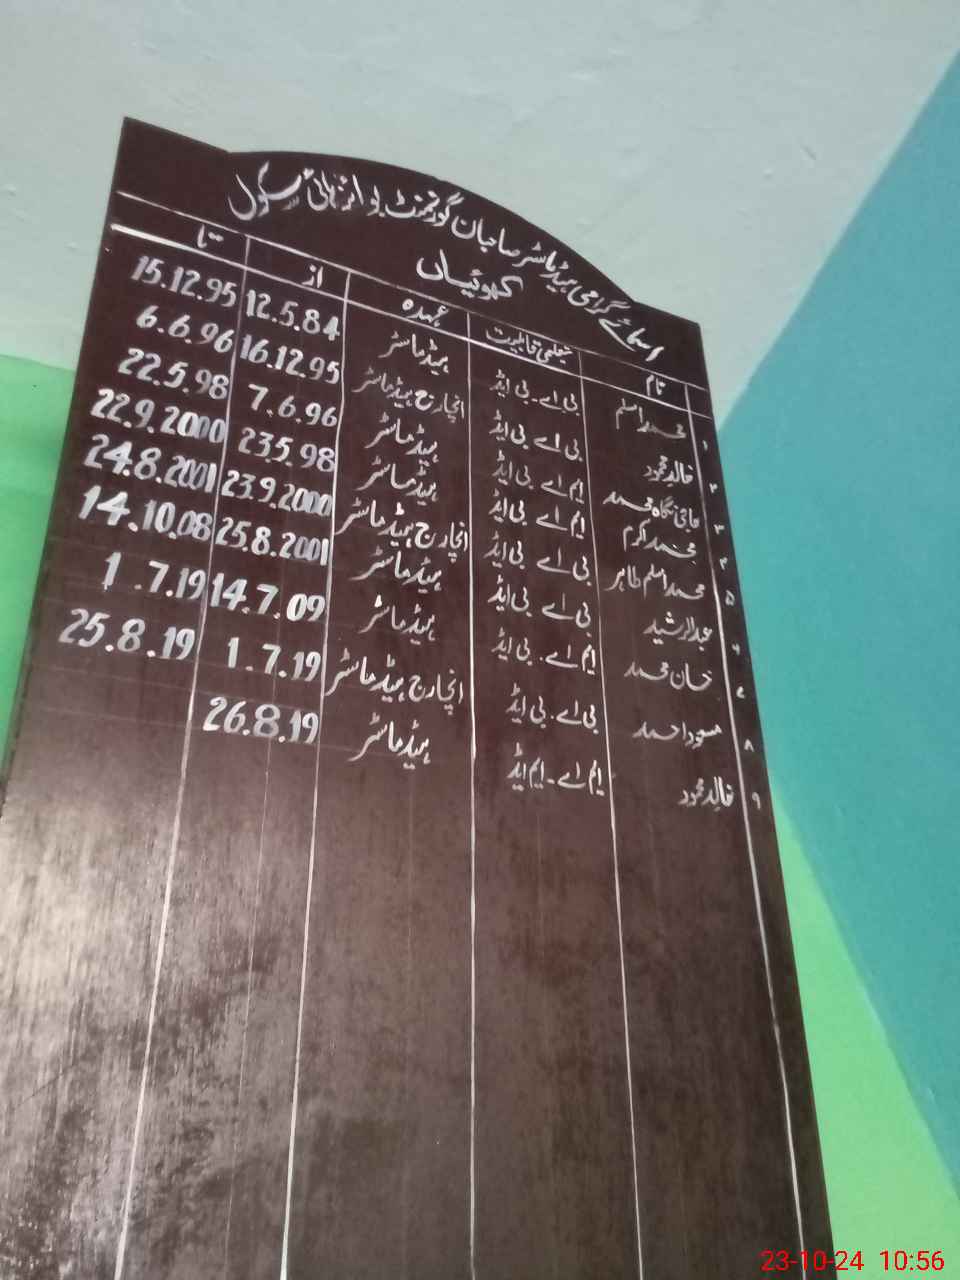 اسمائے گرامی ہیڈ ماسٹر صاحبان گورنمنٹ بوائز ہائی سکول
کھوئیاں
نام تعلیمی قابلیت عہدہ از تا
۱ محمد اسلم بی اے۔ بی ایڈ ہیڈ ماسٹر 12.5.84 15.12.95
۲ خالد محمود بی اے بی ایڈ انچارج ہیڈ ماسٹر 16.12.95 6.6.96
۳ حاجی نگاہ محمد ایم اے بی ایڈ ہیڈ ماسٹر 7.6.96 22.5.98
۴ محمد اکرم ایم اے بی ایڈ ہیڈ ماسٹر 23.5.98 22.9.2000
۵ محمد اسلم طاہر بی اے بی ایڈ انچارج ہیڈ ماسٹر 23.9.2000 24.8.2001
۶ عبدالرشید بی اے بی ایڈ ہیڈ ماسٹر 25.8.2001 14.10.08
۷ خان محمد ایم اے۔ بی ایڈ ہیڈ ماسٹر 14.7.09 1.7.19
۸ مسعود احمد بی اے۔ بی ایڈ انچارج ہیڈ ماسٹر 1.7.19 25.8.19
۹ خالد محمود ایم اے۔ ایم ایڈ ہیڈ ماسٹر 26.8.19
23-10-24 10:56